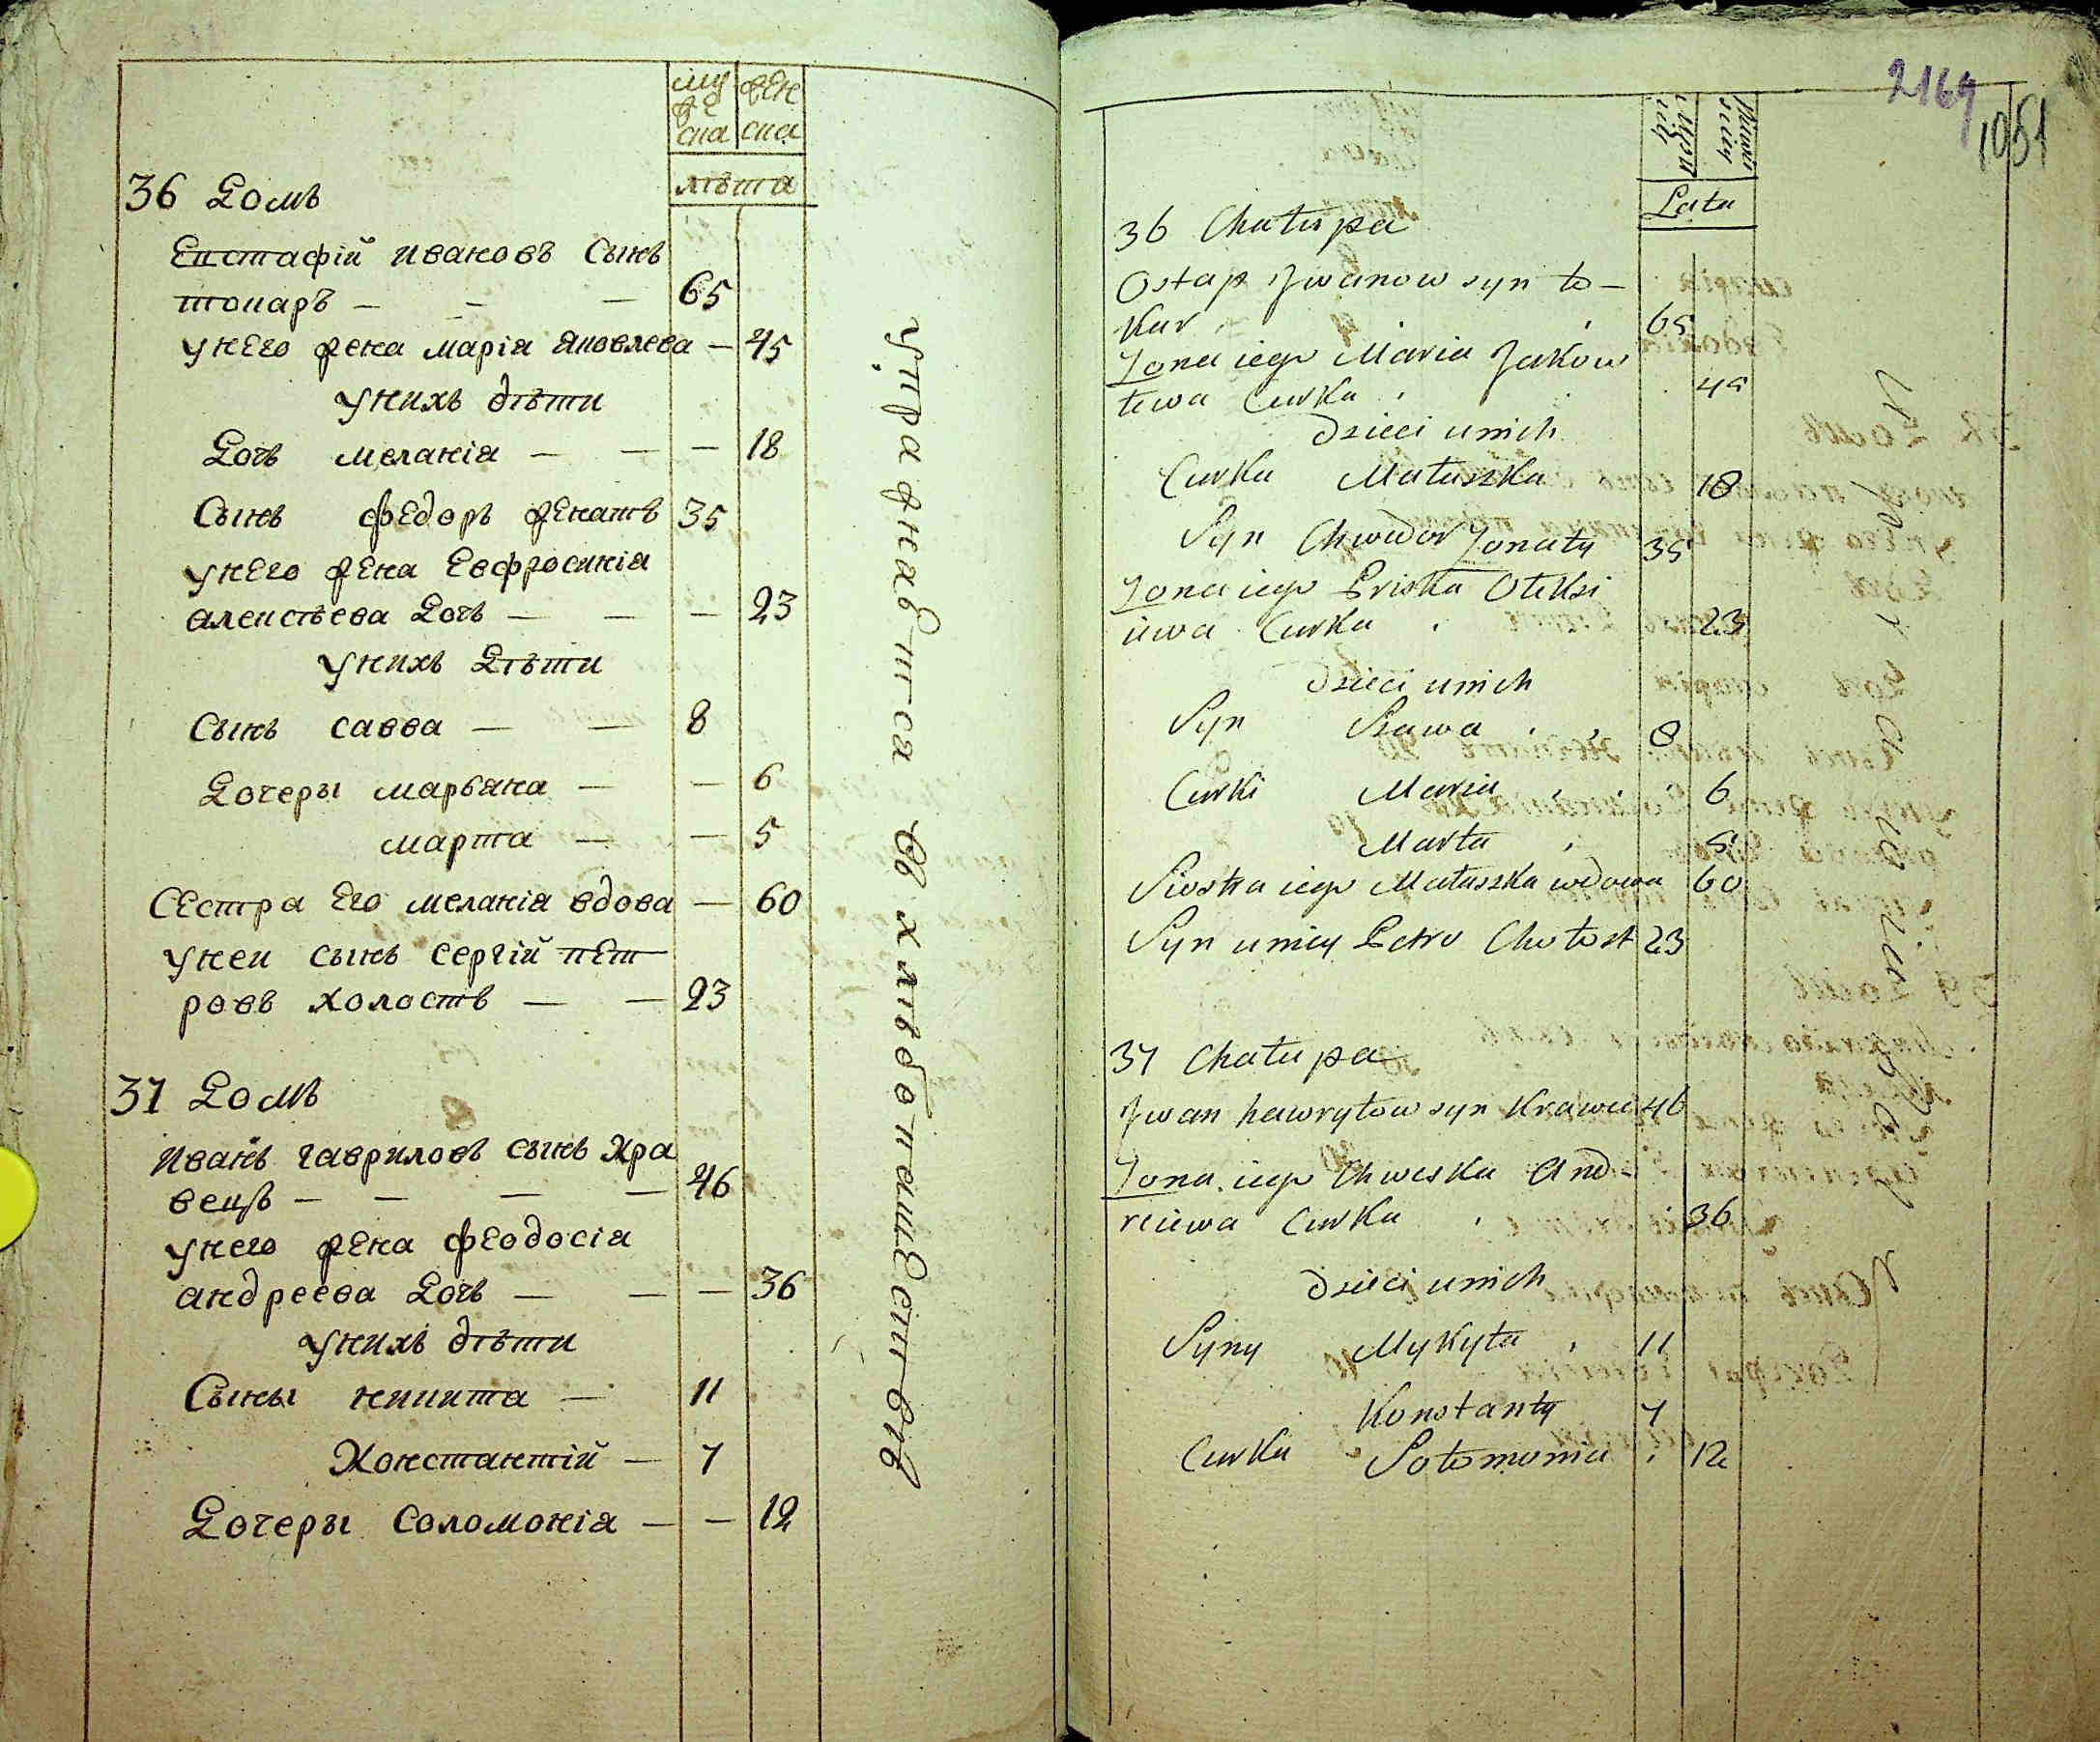 муже
ска
жен
ска
лѣта
36 Домъ
Евстафій Ивановъ Сынъ
токаръ — — — 65
у него жена Марія Яковлева — 45
у нихъ дѣти
Дочь Меланія — — — 18
Сынъ Федоръ женатъ 35
у него жена Евфросинія
Алексѣева Дочь — — — 23
у нихъ Дѣти
Сынъ Савва — — 8
Дочеры Марьяна — — 6
Марта — — 5
Сестра Его Меланія вдова — 60
у неи сынъ Сергій Пет
ровъ холостъ — — 23
37 Домъ
Иванъ Гавриловъ сынъ Кра
вецъ — — — — 46
у него жена Феодосія
Андреева Дочь — — — 36
у нихъ дѣти
Сыны Никита — 11
Константій — 7
Дочеры Соломонія — — 12
упражнаются въ хлѣбопашествѣ
2169
1051
Lata
36 Chałupa
Ostap Jwanow syn to-
kar 65
Żona iego Maria Jakow
lewa Curka 45
Dzieci u nich
Curka Małaszka 18
Syn Chwedor Żonaty 35
Żona iego Priska Oleksi
iewa Curka 23
Dzieci u nich
Syn Sawa 8
Curki Maria 6
Marta 5
Siostra iego Małaszka wdowa 60
Syn u niey Petro Chołost 23
37 Chałupa
Jwan hawryłow syn Krawec 46
Żona iego Chweska And-
reiewa Curka 36
Dzieci u nich
Syny Mykyta 11
Konstanty 7
Curka Sołomonia 12